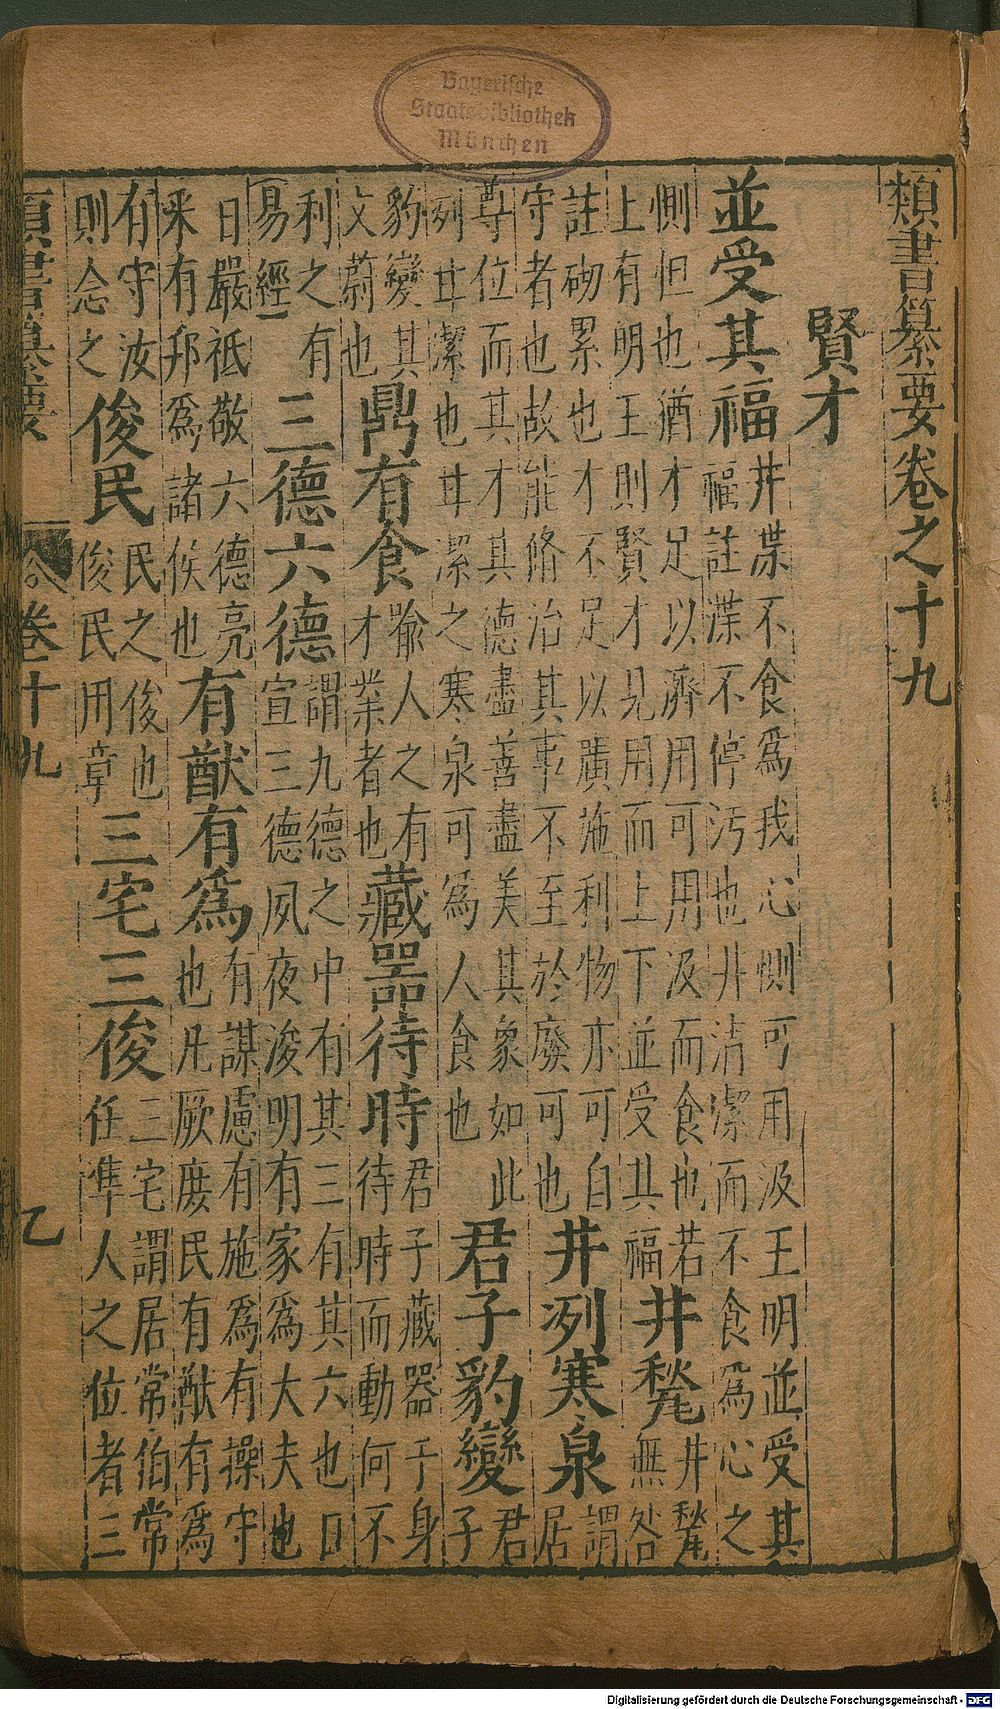 Bayerische
Staatsbibliothek
München
類書纂要卷之十九
賢才
並受其福 井渫不食爲我心惻可用汲王明並受其福註渫不停污也井清潔而不食爲心之
惻但也猶才足以濟用可用汲而食也若上有明王則賢才見用而上下並受其福 井甃 井甃無咎
註砌累也才不足以廣施利物亦可自守者也故能脩治其事不至於廢可也 井冽寒泉 謂居
尊位而其才其德盡善盡美其象如此冽甘潔也甘潔之寒泉可爲人食也 君子豹變 君子
豹變其文蔚也 鼎有食 喻人之有才業者也 藏器待時 君子藏器于身待時而動何不
利之有易經 三德六德 謂九德之中有其三有其六也曰宣三德夙夜浚明有家爲大夫也
日嚴祗敬六德亮釆有邦爲諸侯也 有猷有爲 有謀慮有施爲有操守也凡厥庶民有猷有爲
有守汝則念之 俊民 民之俊也俊民用章 三宅三俊 三宅謂居常伯常任準人之位者三
類書纂要 卷十九 乙
Digitalisierung gefördert durch die Deutsche Forschungsgemeinschaft - DFG